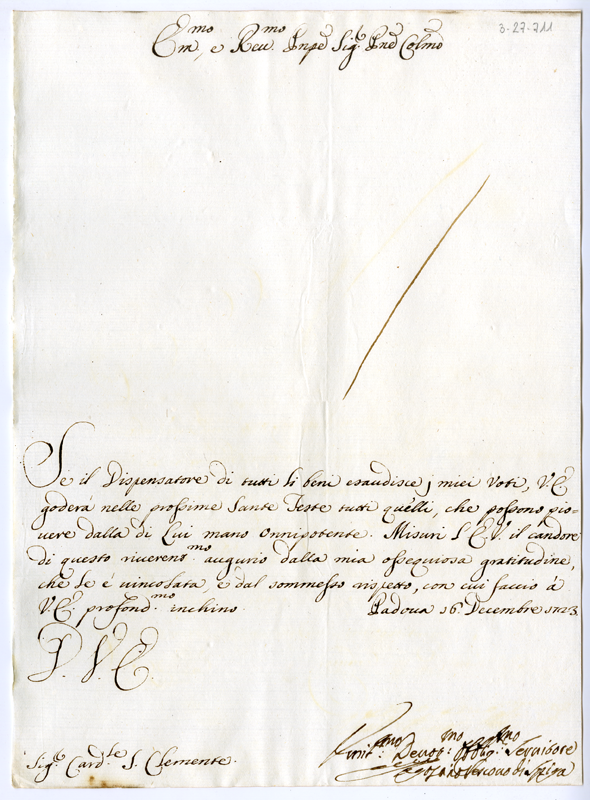 3-27-711
Em.mo e Reu.mo Pnpe Sig.r Pne Colmo
Se il Dispensatore di tutti li beni esaudisce i miei Voti, V.E.
goderà nelle prossime Sante Feste tutti quelli, che possono pio-
uere dalla di Lui mano onnipotente. Misuri l'E.V. il candore
di questo riuerent.mo augurio dalla mia ossequiosa gratitudine,
che Le è uincolata, e dal sommesso rispetto, con cui faccio à
V.E. profond.mo inchino. Padova 16 Decembre 1723.
D. V. E.
Sig.r Card.le S. Clemente.
Vmit.mo Deuot.mo Obblig.mo Seruitore
Vescouo di